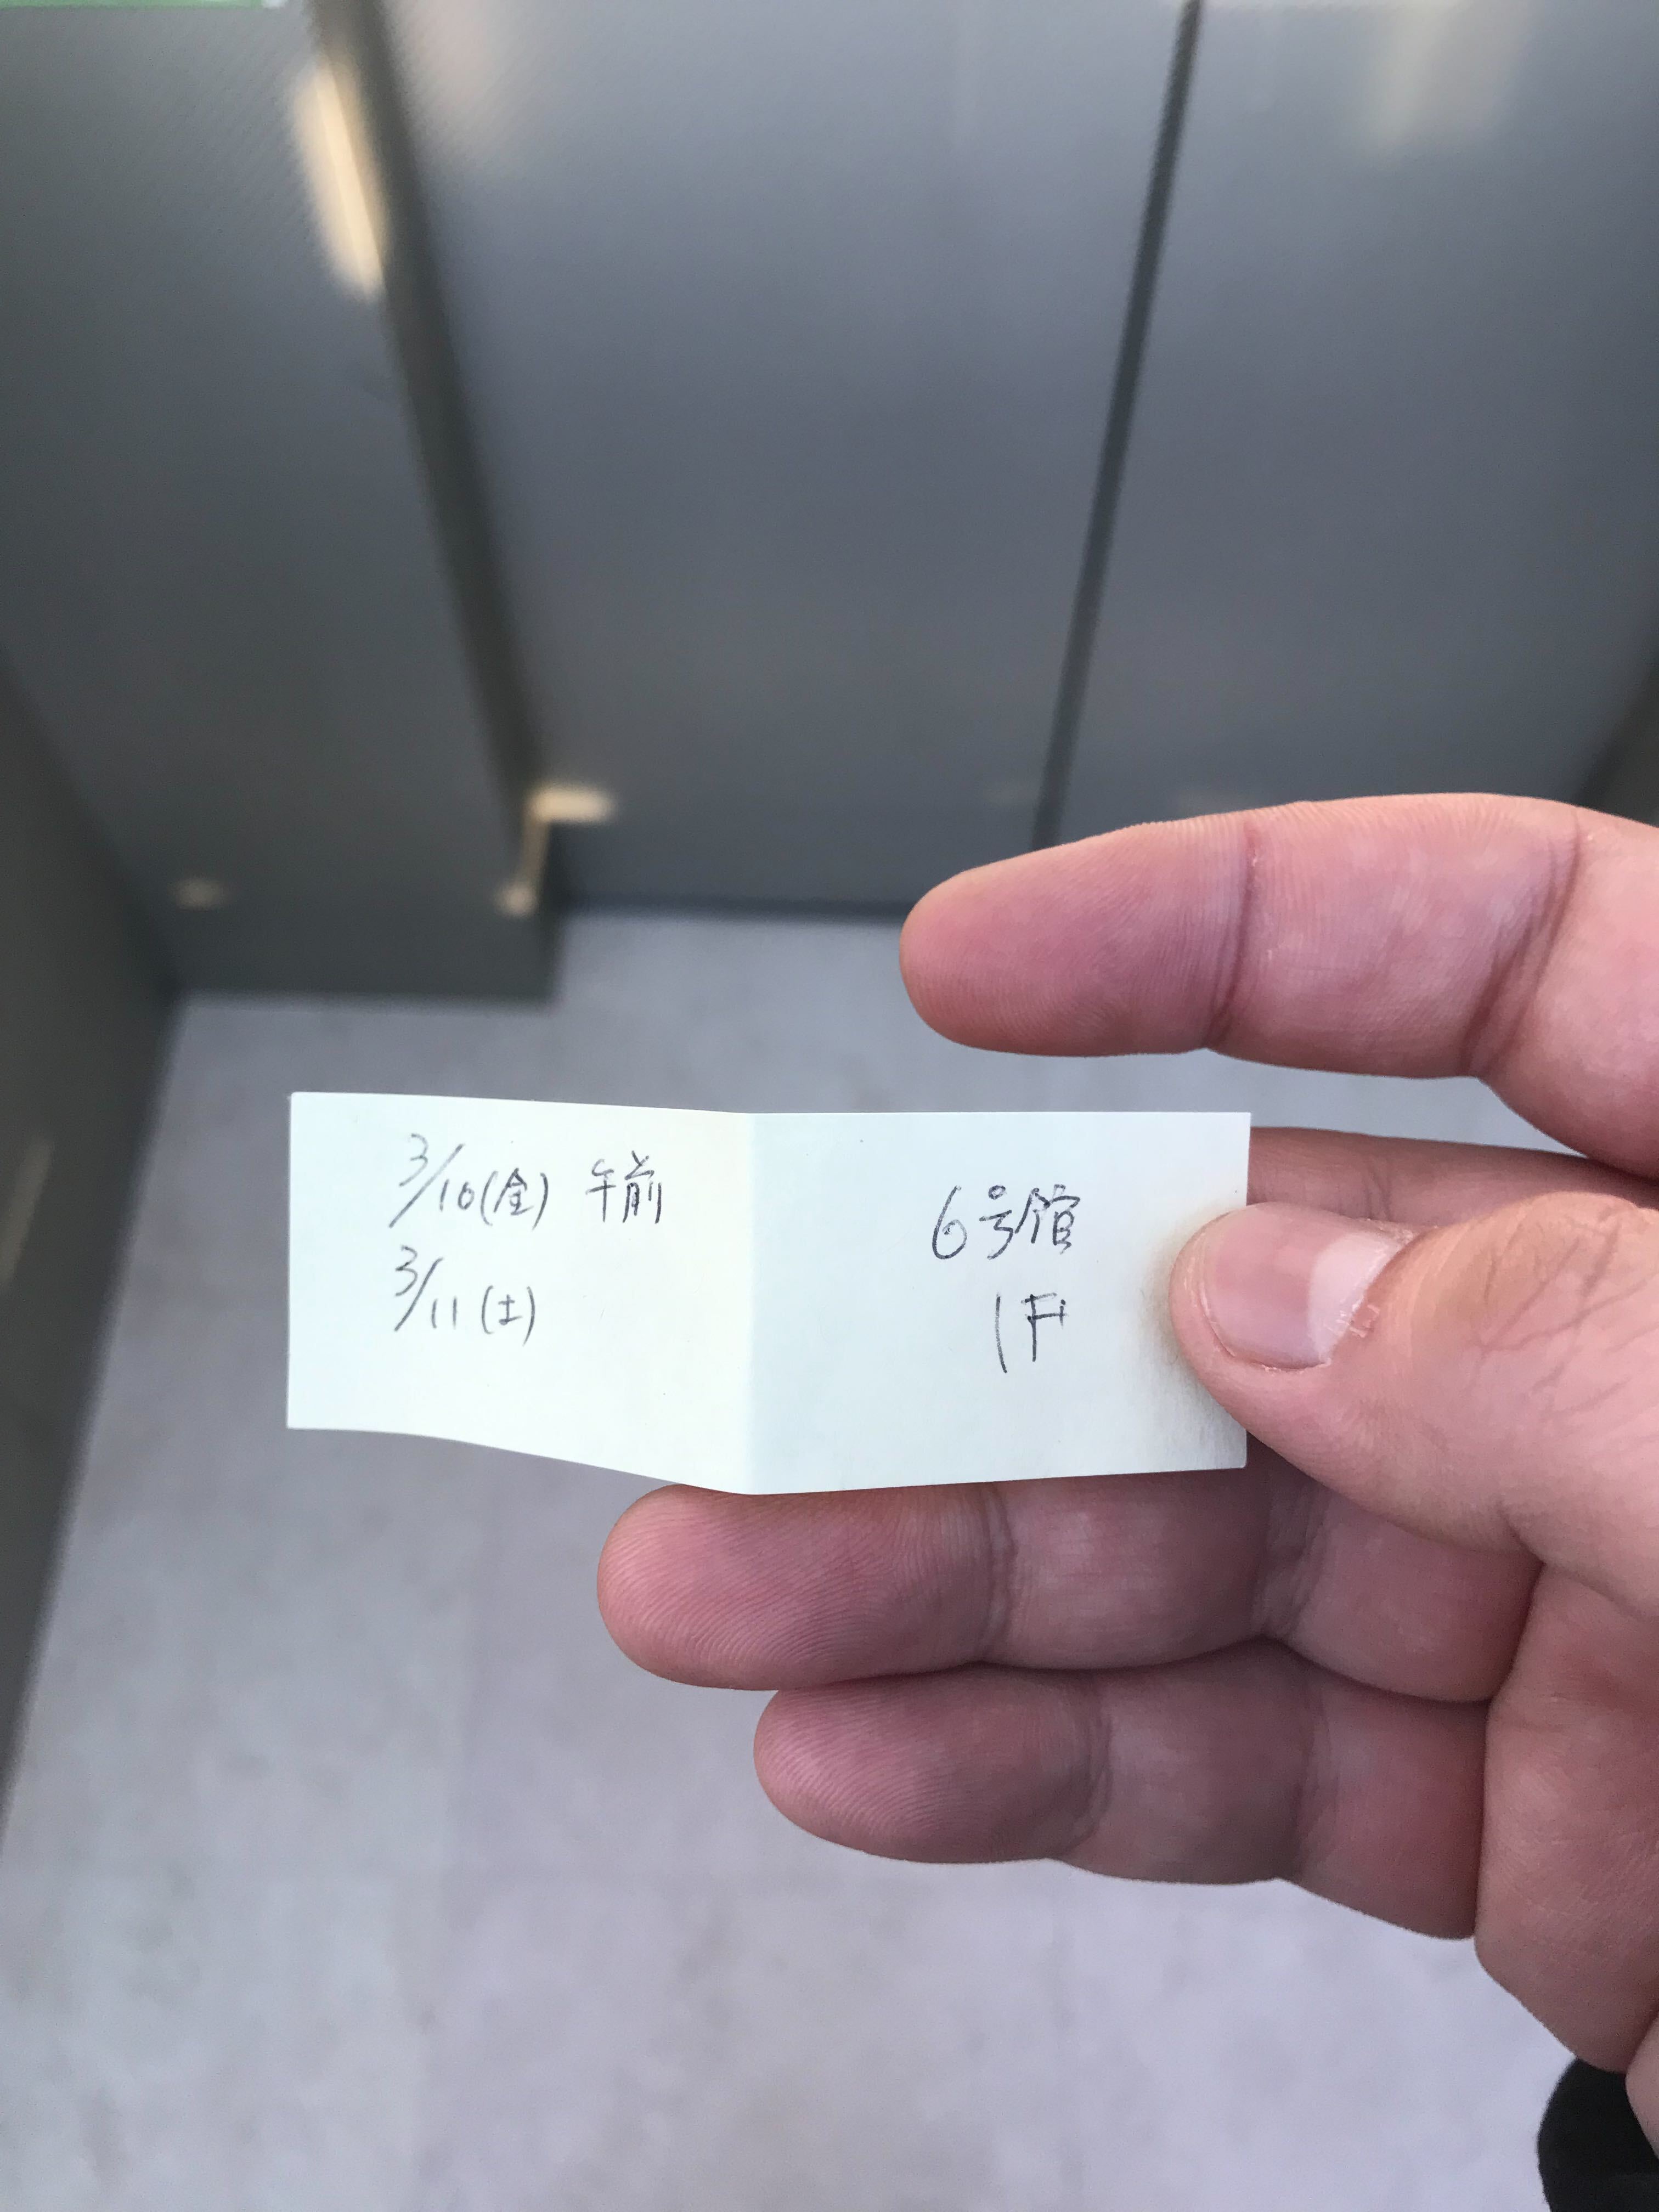 3/10(金) 午前
3/11(土)
6号館
1F